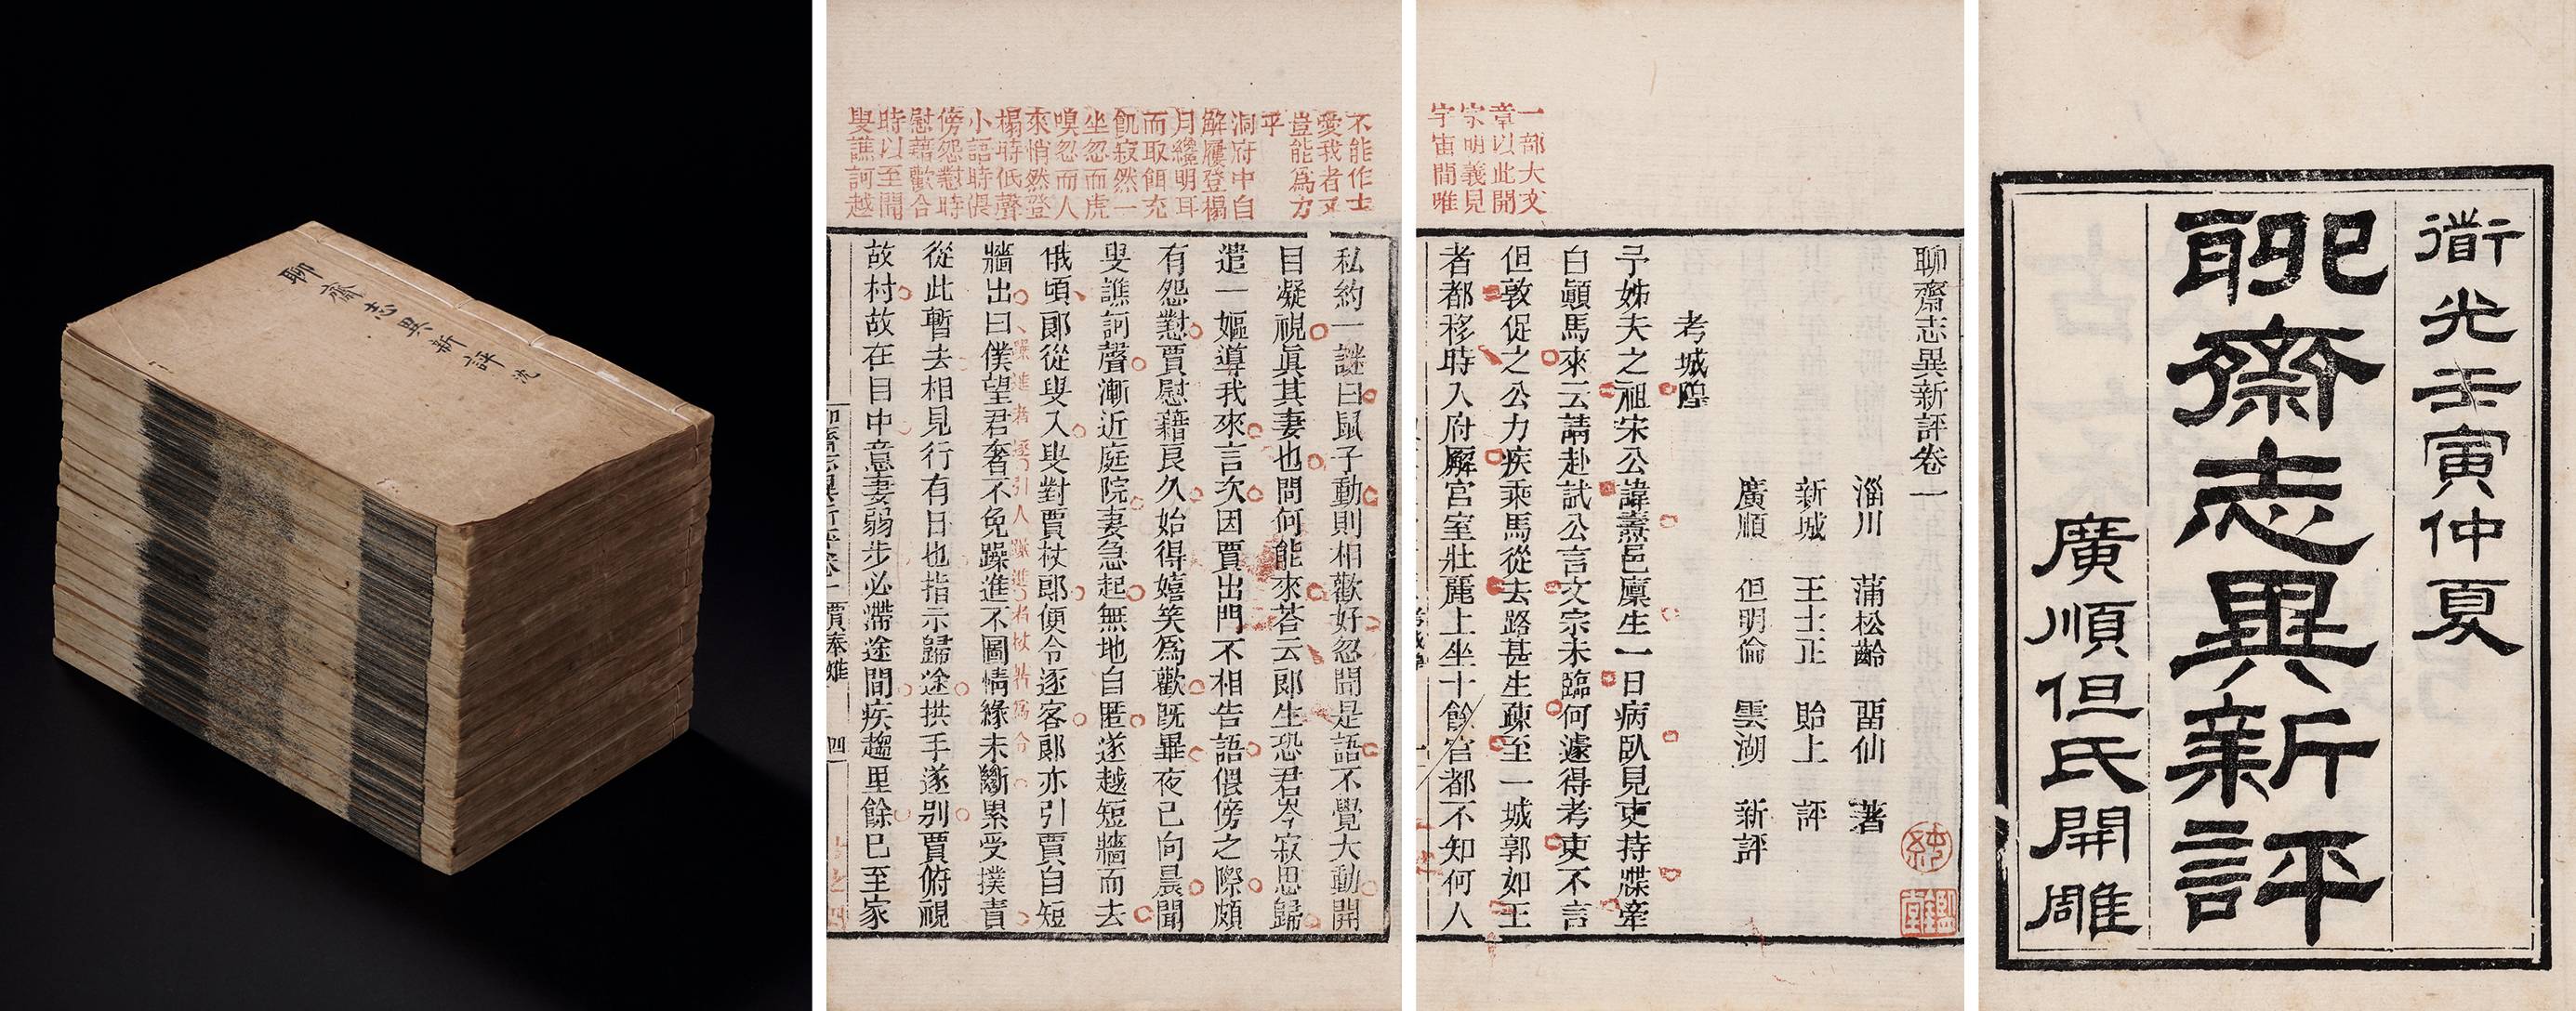 聊齋志異新評
不能作士
愛我者又
豈能為力
乎
洞府中自
解履登榻
月纔明耳
而取餌充
飢寂然一
坐忽而虎
嗅忽而人
來悄然登
榻時低聲
小語時偎
傍怨懟時
慰藉歡合
時以至聞
叟譙訶越
私約一謎曰鼠子動則相歡好忽聞是語不覺大動開
目凝視眞其妻也問何能來荅云郎生恐君岑寂思歸
遣一嫗導我來言次因賈出門不相告語偎傍之際頗
有怨懟賈慰藉良久始得嬉笑爲歡既畢夜已向晨聞
叟譙訶聲漸近庭院妻急起無地自匿遂越短牆而去
俄頃郎從叟入叟對賈杖郎便令逐客郎亦引賈自短
牆出曰僕望君奢不免躁進不圖情緣未斷累受撲責
從此暫去相見行有日也指示歸途拱手遂别賈俯視
故村故在目中意妻弱步必滯途間疾趨里餘已至家
一部大文
章以此開
宗明義見
宇宙間唯
聊齋志異新評卷一
淄川 蒲松齡 畱仙 著
新城 王士正 貽上 評
廣順 但明倫 雲湖 新評
考城隍
予姊夫之祖宋公諱燾邑廩生一日病臥見吏持牒牽
白顚馬來云請赴試公言文宗未臨何遽得考吏不言
但敦促之公力疾乘馬從去路甚生疎至一城郭如王
者都移時入府廨宮室壯麗上坐十餘官都不知何人
道光壬寅仲夏
聊齋志異新評
廣順但氏開雕